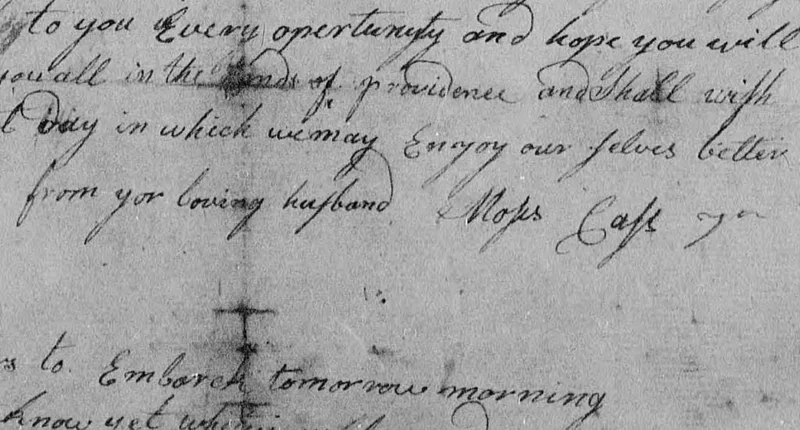 to you Every opertunity and hope you will
you all in the hands of providence and Shall wish
t Day in which we may Enjoy our selves better
from yor loving husband Moses Cass
to Embark tomorrow morning
know yet